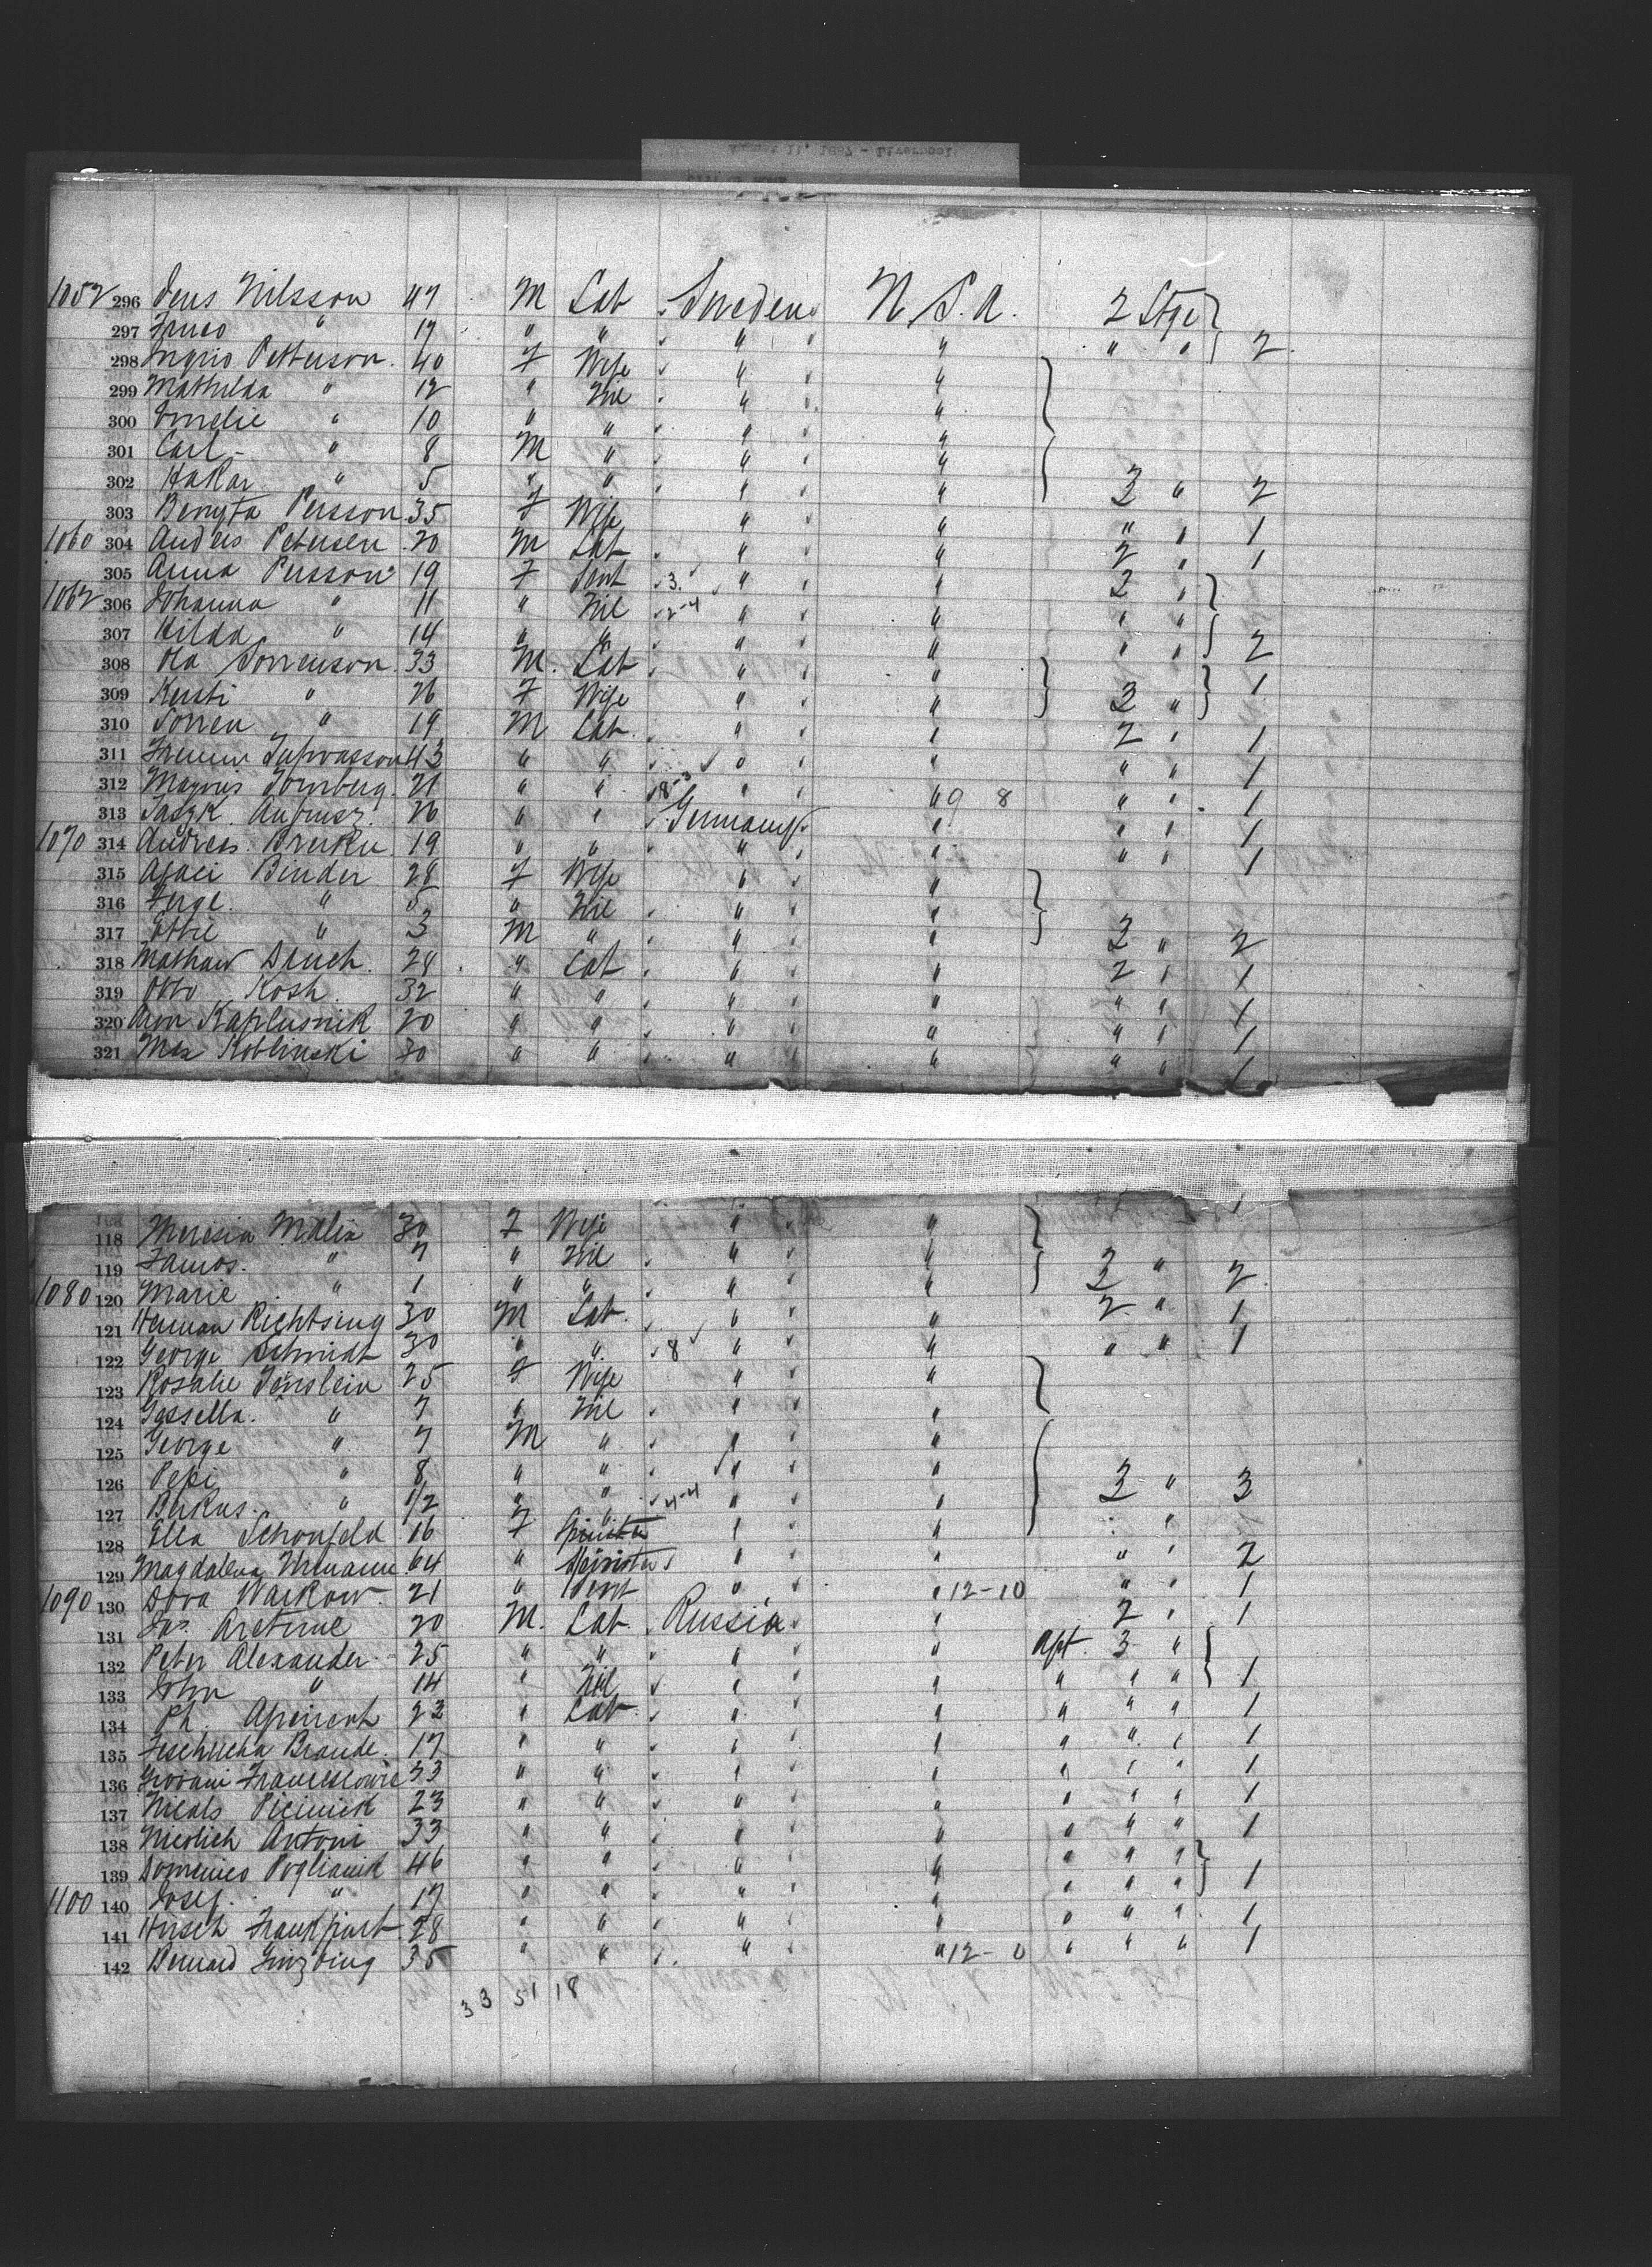 1052 296 Jens Nilsson 47 M Lab Sweden U.S.A. 2 Stge
297 " 17 " " " " " " 2
298 Ingrid Petterson 40 F Wife " "
299 Mathilda " 12 " Nil " "
300 Emelie " 10 " " " "
301 Carl " 8 M " " "
302 Hakar " 5 " " " " 3 " 2
303 Bengta Persson 35 F Wife " " " " 1
1060 304 Anders Petersen 20 M Lab " " 2 " 1
305 Anna Persson 19 F Servt 3 " " 2 "
1062 306 Johanna " 11 " Nil 2-4 " " " "
307 Hilda " 14 " " " " " " 2
308 Ola Sorrenson 33 M Lab " " 1
309 Kersti " 26 F Wife " " 3 "
310 Sorren " 19 M Lab " " 2 " 1
311 43 " " " " " " 1
312 Magnus Tornberg 21 " " 8-3 " " 9 8 " " 1
313 26 " " Germany " " " 1
1070 314 Andreas 19 " " " " " " 1
315 Binder 28 F Wife " "
316 " 5 " Nil " "
317 " 3 M " " " 3 " 2
318 28 " Lab " " 2 " 1
319 Otto Kosh 32 " " " " " " 1
320 Kaplusnik 20 " " " " " " 1
321 Max Koblinski 30 " " " " " " 1
118 Malis 30 F Wife " "
119 " 7 " Nil " " 3 " 2
1080 120 Marie " 1 " " " "
121 Herman Richtsing 30 M Lab " " 2 " 1
122 George Schmidt 30 " " 8 " " " " 1
123 Rosalie 25 F Wife " "
124 Gessella " 7 " Nil " "
125 George " 7 M " " "
126 Pepi " 8 " " " " 3 " 3
127 " 1/2 " " 4-4 " "
128 Ella Schonfeld 16 F Spinster " " " "
129 Magdalena 64 " Spinster " " " " 2
1090 130 Dora Warkow 21 " Servt " " 12-10 " " 1
131 20 M Lab Russia " 2 " 1
132 Peter Alexander 25 " " " " Aft 3 "
133 John " 14 " Nil " " " " " 1
134 Ph. 23 " Lab " " " " " 1
135 Braude 17 " " " " " " " 1
136 33 " " " " " " " 1
137 23 " " " " " " " 1
138 Antoni 33 " " " " " " " 1
139 Domenico Poglianik 46 " " " " " " "
1100 140 Josef " 17 " " " " " " " 1
141 Hirsch Frankfurt 28 " " " " " " " 1
142 Bernard 35 " " " " 12-0 " " " 1
33 51 18